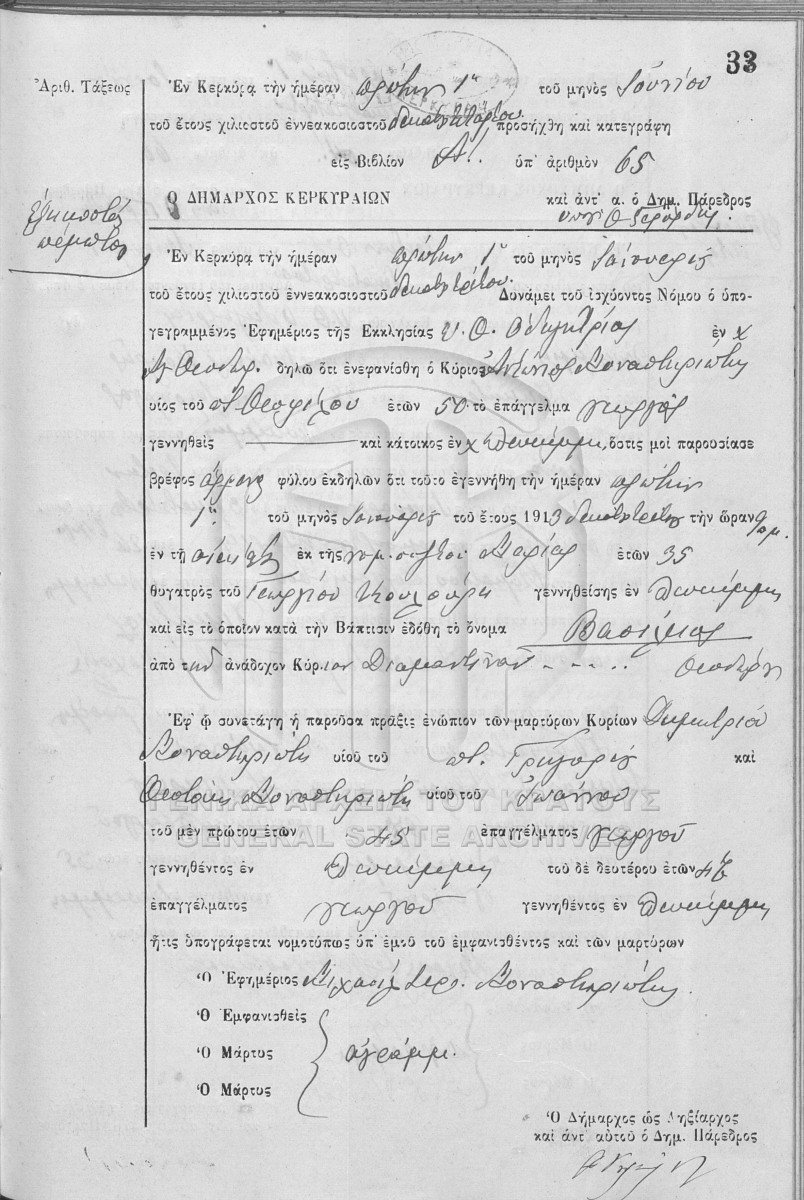 33
Ἀριθ. Τάξεως
Ἐν Κερκύρᾳ τὴν ἡμέραν πρώτην 1ην τοῦ μηνὸς Ἰουνίου
τοῦ ἔτους χιλιοστοῦ ἐννεακοσιοστοῦ δεκάτου τετάρτου προσήχθη καὶ κατεγράφη
εἰς Βιβλίον Α! ὑπ' ἀριθμὸν 65
Ὁ ΔΗΜΑΡΧΟΣ ΚΕΡΚΥΡΑΙΩΝ καὶ ἀντ' α. ὁ Δημ. Πάρεδρος
ἑξηκοστὸς
πέμπτος
Ἐν Κερκύρᾳ τὴν ἡμέραν πρώτην 1ην τοῦ μηνὸς Ἰανουαρίου
τοῦ ἔτους χιλιοστοῦ ἐννεακοσιοστοῦ δεκάτου τρίτου Δυνάμει τοῦ ἰσχύοντος Νόμου ὁ ὑπο-
γεγραμμένος Ἐφημέριος τῆς Ἐκκλησίας Υ. Θ. Ὁδηγητρίας ἐν χ
δηλῶ ὅτι ἐνεφανίσθη ὁ Κύριος Ἀντώνιος Μοναστηριώτης
υἱὸς τοῦ π. Θεοφίλου ἐτῶν 50 τὸ ἐπάγγελμα γεωργὸς
γεννηθεὶς — καὶ κάτοικος ἐν χ ὅστις μοὶ παρουσίασε
βρέφος ἄρρενος φύλου ἐκδηλῶν ὅτι τοῦτο ἐγεννήθη τὴν ἡμέραν πρώτην
1ην τοῦ μηνὸς Ἰανουαρίου τοῦ ἔτους 1913 δεκάτου τρίτου τὴν ὥραν 9 π.μ.
ἐν τῇ οἰκίᾳ ἐκ τῆς νομ. συζύγου Μαρίας ἐτῶν 35
θυγατρὸς τοῦ Γεωργίου γεννηθείσης ἐν
καὶ εἰς τὸ ὁποῖον κατὰ τὴν Βάπτισιν ἐδόθη τὸ ὄνομα Βασίλειος
ἀπὸ τὴν ἀνάδοχον Κύριον
Ἐφ' ᾧ συνετάγη ἡ παροῦσα πρᾶξις ἐνώπιον τῶν μαρτύρων Κυρίων Δημητρίου
Μοναστηριώτη υἱοῦ τοῦ π. Γρηγορίου καὶ
Μοναστηριώτη υἱοῦ τοῦ Ἰωάννου
ΓΕΝΙΚΑ ΑΡΧΕΙΑ ΤΟΥ ΚΡΑΤΟΥΣ
GENERAL STATE ARCHIVES
τοῦ μὲν πρώτου ἐτῶν 45 ἐπαγγέλματος γεωργοῦ
γεννηθέντος ἐν τοῦ δὲ δευτέρου ἐτῶν
ἐπαγγέλματος γεωργοῦ γεννηθέντος ἐν
ἥτις ὑπογράφεται νομοτύπως ὑπ' ἐμοῦ τοῦ ἐμφανισθέντος καὶ τῶν μαρτύρων
Ὁ Ἐφημέριος Μιχαὴλ Ἱερ. Μοναστηριώτης
Ὁ Ἐμφανισθεὶς
Ὁ Μάρτυς ἀγράμμ.
Ὁ Μάρτυς
Ὁ Δήμαρχος ὡς Ληξίαρχος
καὶ ἀντ' αὐτοῦ ὁ Δημ. Πάρεδρος